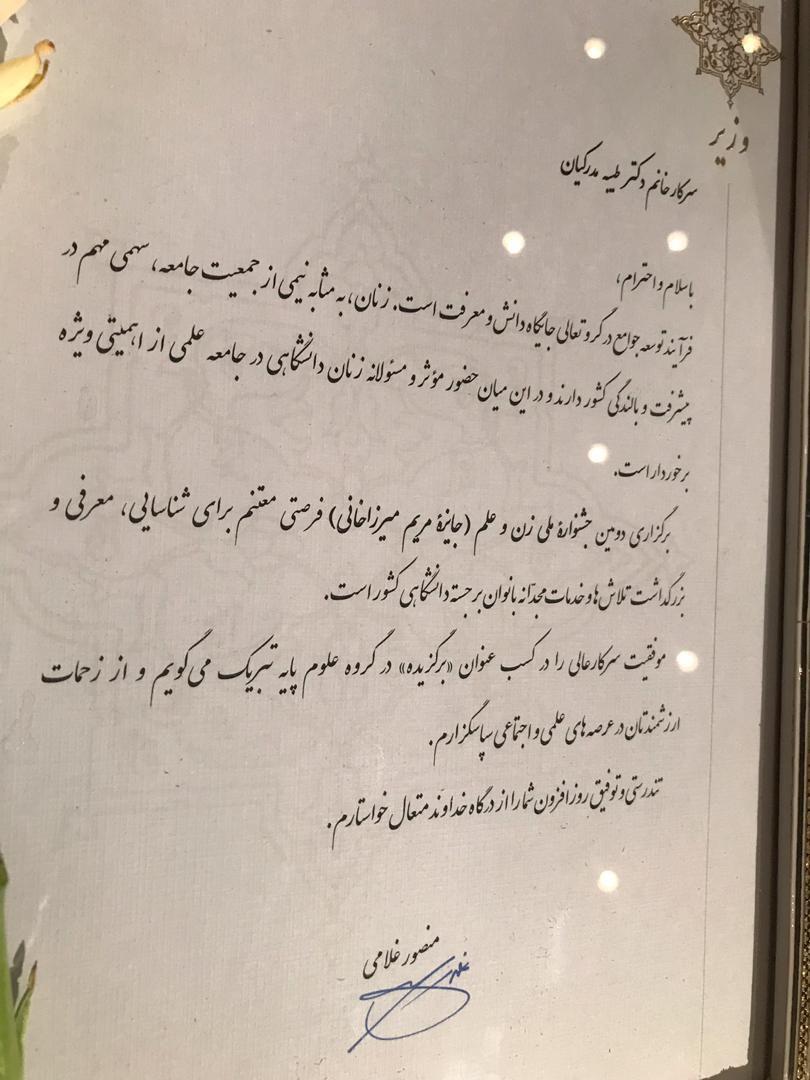 وزیر
سرکار خانم دکتر طیبه مدرکیان
باسلام و احترام،
فرآیند توسعه جوامع در گرو تعالی جایگاه دانش و معرفت است. زنان، به مثابه نیمی از جمعیت جامعه، سهمی مهم در
پیشرفت و بالندگی کشور دارند و در این میان حضور مؤثر و مسئولانه زنان دانشگاهی در جامعه علمی از اهمیتی ویژه
برخوردار است.
برگزاری دومین جشنوارهٔ ملی زن و علم (جایزهٔ مریم میرزاخانی) فرصتی مغتنم برای شناسایی، معرفی و
بزرگداشت تلاش‌ها و خدمات مجدّانه بانوان برجسته دانشگاهی کشور است.
موفقیت سرکارعالی را در کسب عنوان «برگزیده» در گروه علوم پایه تبریک می‌گویم و از زحمات
ارزشمندتان در عرصه‌های علمی و اجتماعی سپاسگزارم.
تندرستی و توفیق روزافزون شما را از درگاه خداوند متعال خواستارم.
منصور غلامی